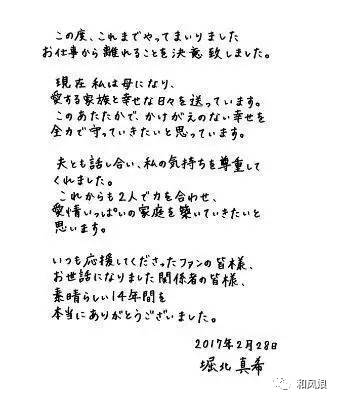 この度、これまでやってまいりました
お仕事から離れることを決意致しました。
現在私は母になり、
愛する家族と幸せな日々を送っています。
このあたたかで、かけがえのない幸せを
全力で守っていきたいと思っています。
夫とも話し合い、私の気持ちを尊重して
くれました。
これからも2人で力を合わせ、
愛情いっぱいの家庭を築いていきたいと
思います。
いつも応援してくださったファンの皆様、
お世話になりました関係者の皆様、
素晴らしい14年間を
本当にありがとうございました。
2017年2月28日
堀北真希
和风浪